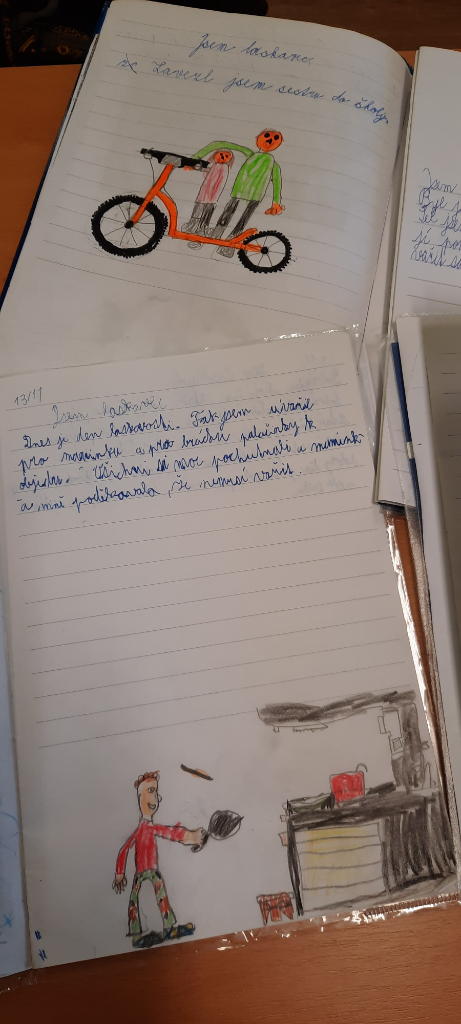 Jsem laskavec
Zavezl jsem sestru do školy.
Jsem
Byl j
13/11
Jsem laskavec
Dnes je den laskavosti. Tak jsem uvařil
pro maminku a pro bráchu palačinky k
obědu. Všichni si moc pochutnali a maminka
a mně poděkovala, že nemusí vařit.